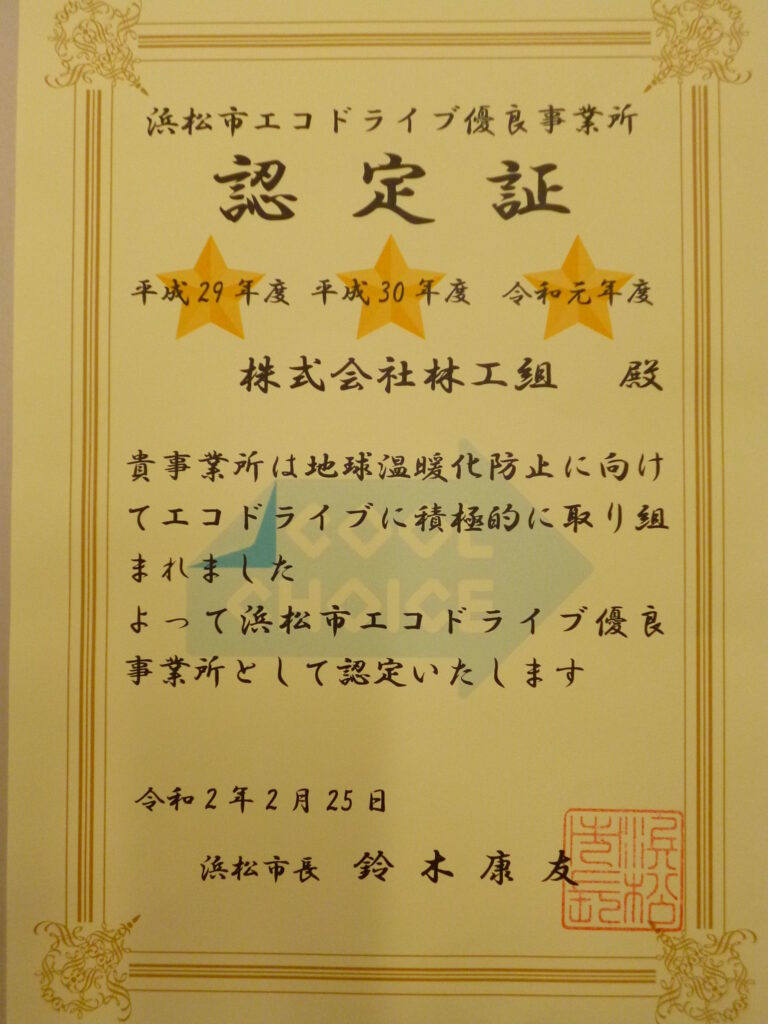 浜松市エコドライブ優良事業所
認定証
平成29年度 平成30年度 令和元年度
株式会社林工組 殿
貴事業所は地球温暖化防止に向け
てエコドライブに積極的に取り組
まれました
COOL
CHOICE
よって浜松市エコドライブ優良
事業所として認定いたします
令和2年2月25日
浜松市長 鈴木康友
浜松市長